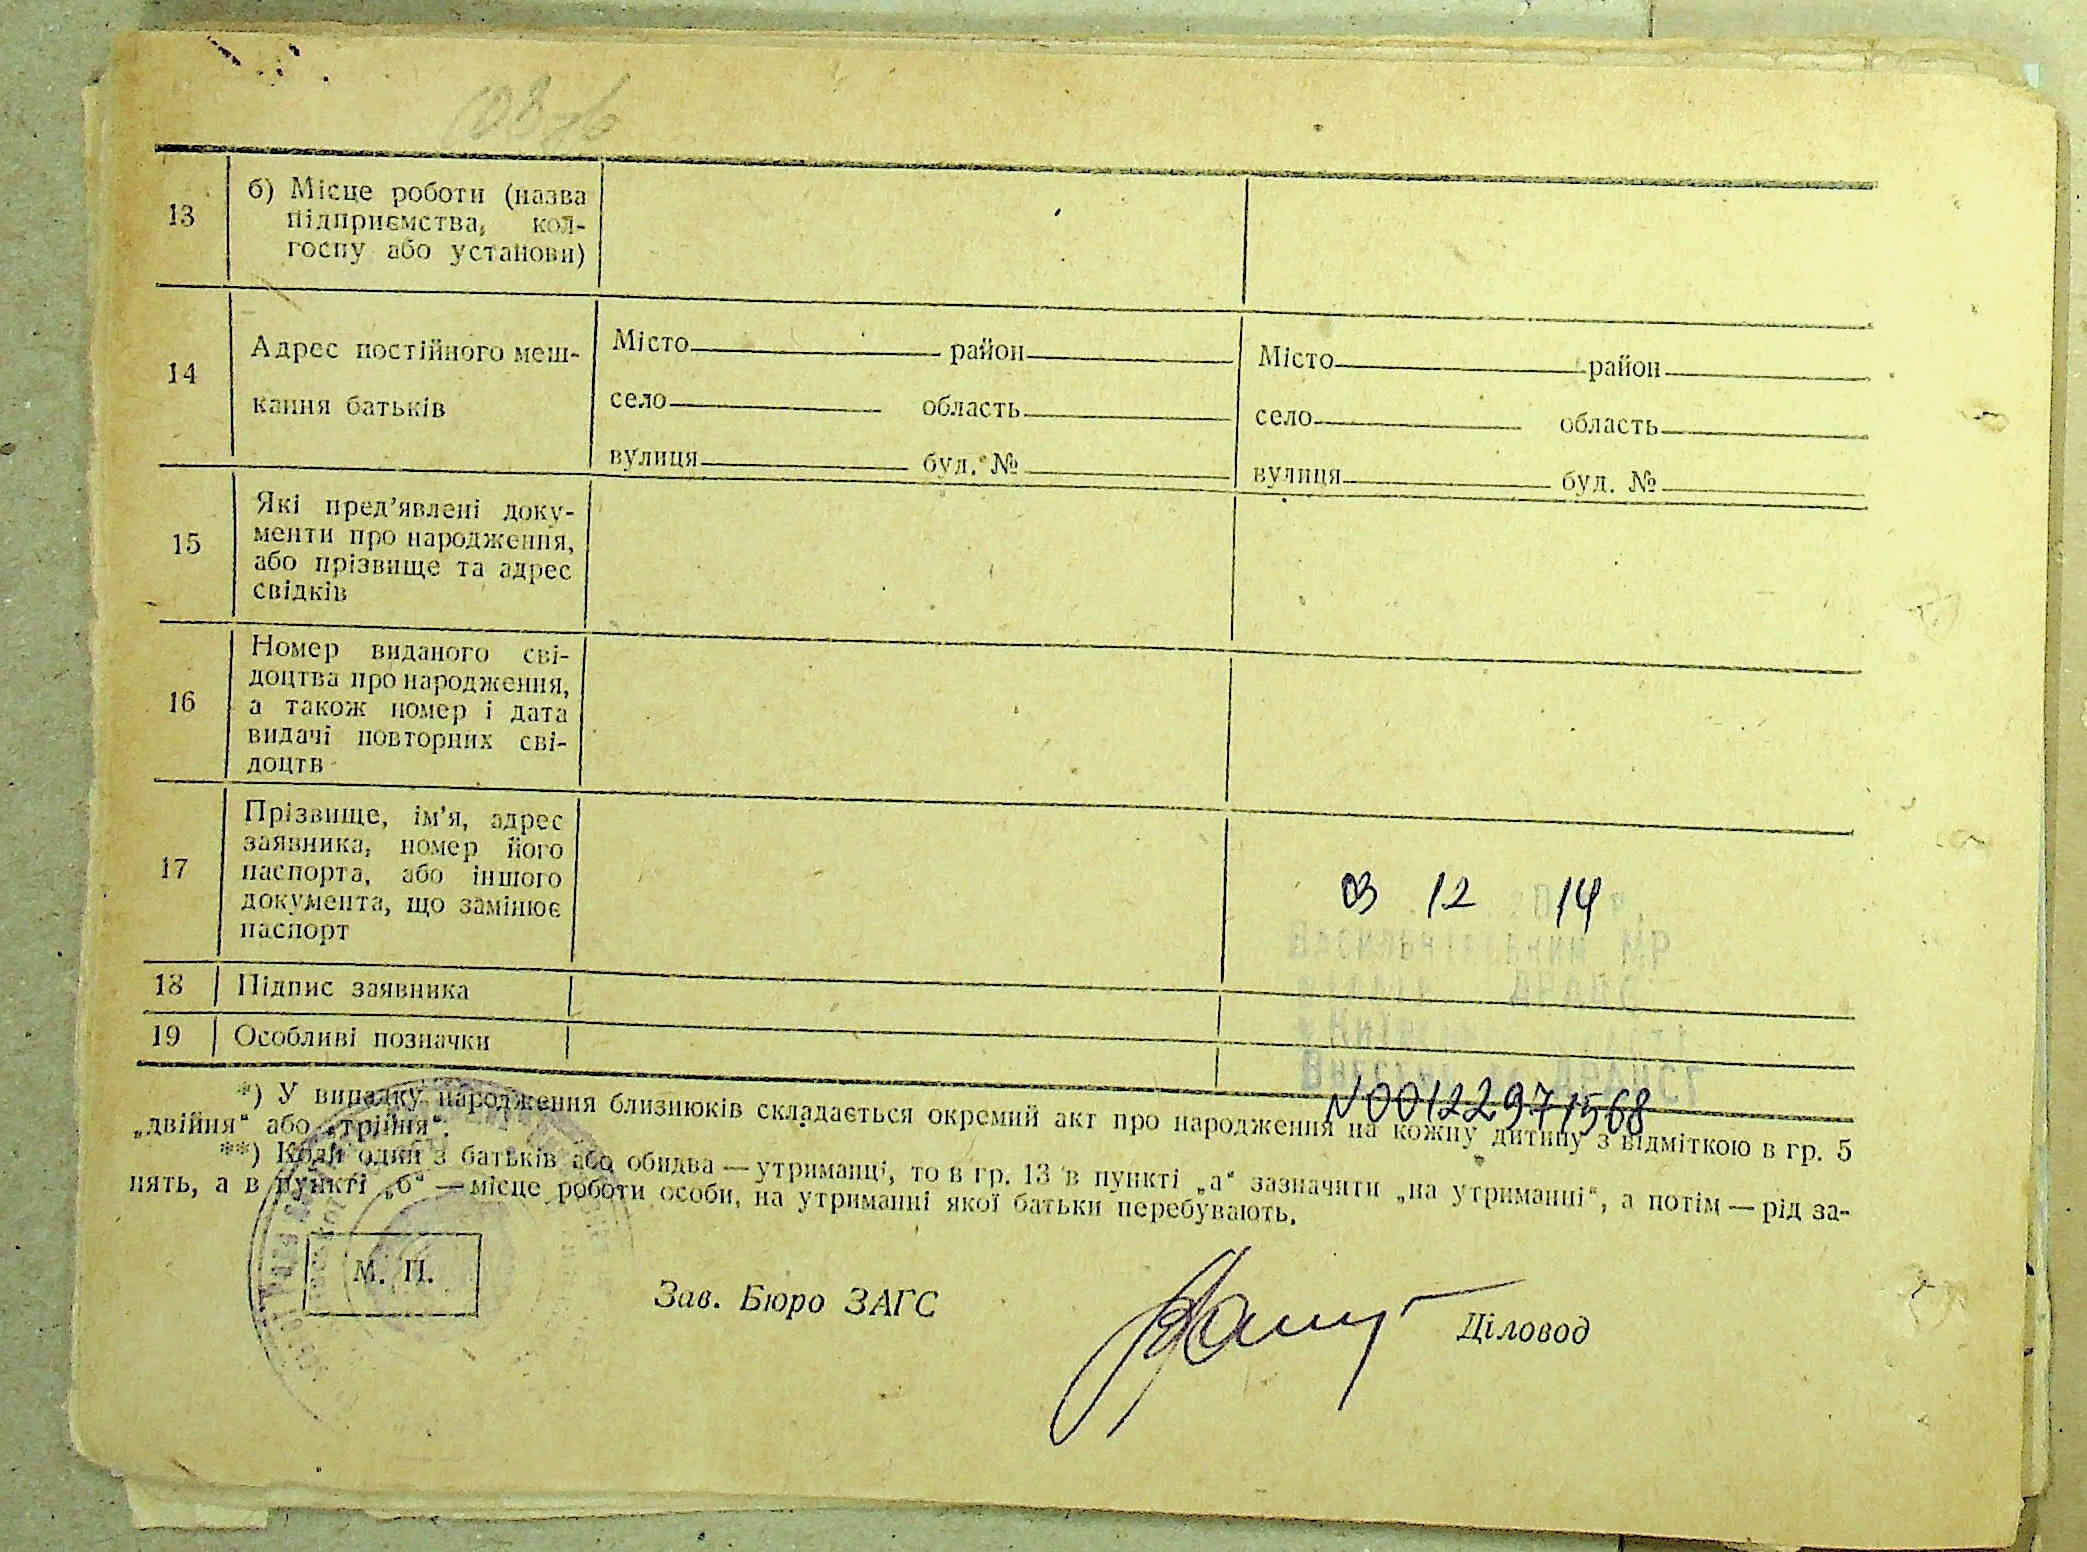 13
б) Місце роботи (назва
підприємства, кол-
госпу або установи)
14
Адрес постійного меш-
кання батьків
Місто район
село область
вулиця буд. №
Місто район
село область
вулиця буд. №
15
Які пред’явлені доку-
менти про народження,
або прізвище та адрес
свідків
16
Номер виданого сві-
доцтва про народження,
а також номер і дата
видачі повторних сві-
доцтв
17
Прізвище, ім’я, адрес
заявника, номер його
паспорта, або іншого
документа, що замінює
паспорт
03 12 14
МР
18 Підпис заявника
19 Особливі позначки
N00122971568
*) У випадку народження близнюків складається окремий акт про народження на кожну дитину з відміткою в гр. 5
„двійня“ або „трійня“.
**) Коли один з батьків або обидва — утриманці, то в гр. 13 в пункті „а“ зазначити „на утриманні“, а потім — рід за-
нять, а в пункті „б“ — місце роботи особи, на утриманні якої батьки перебувають.
М. П.
Зав. Бюро ЗАГС
Діловод